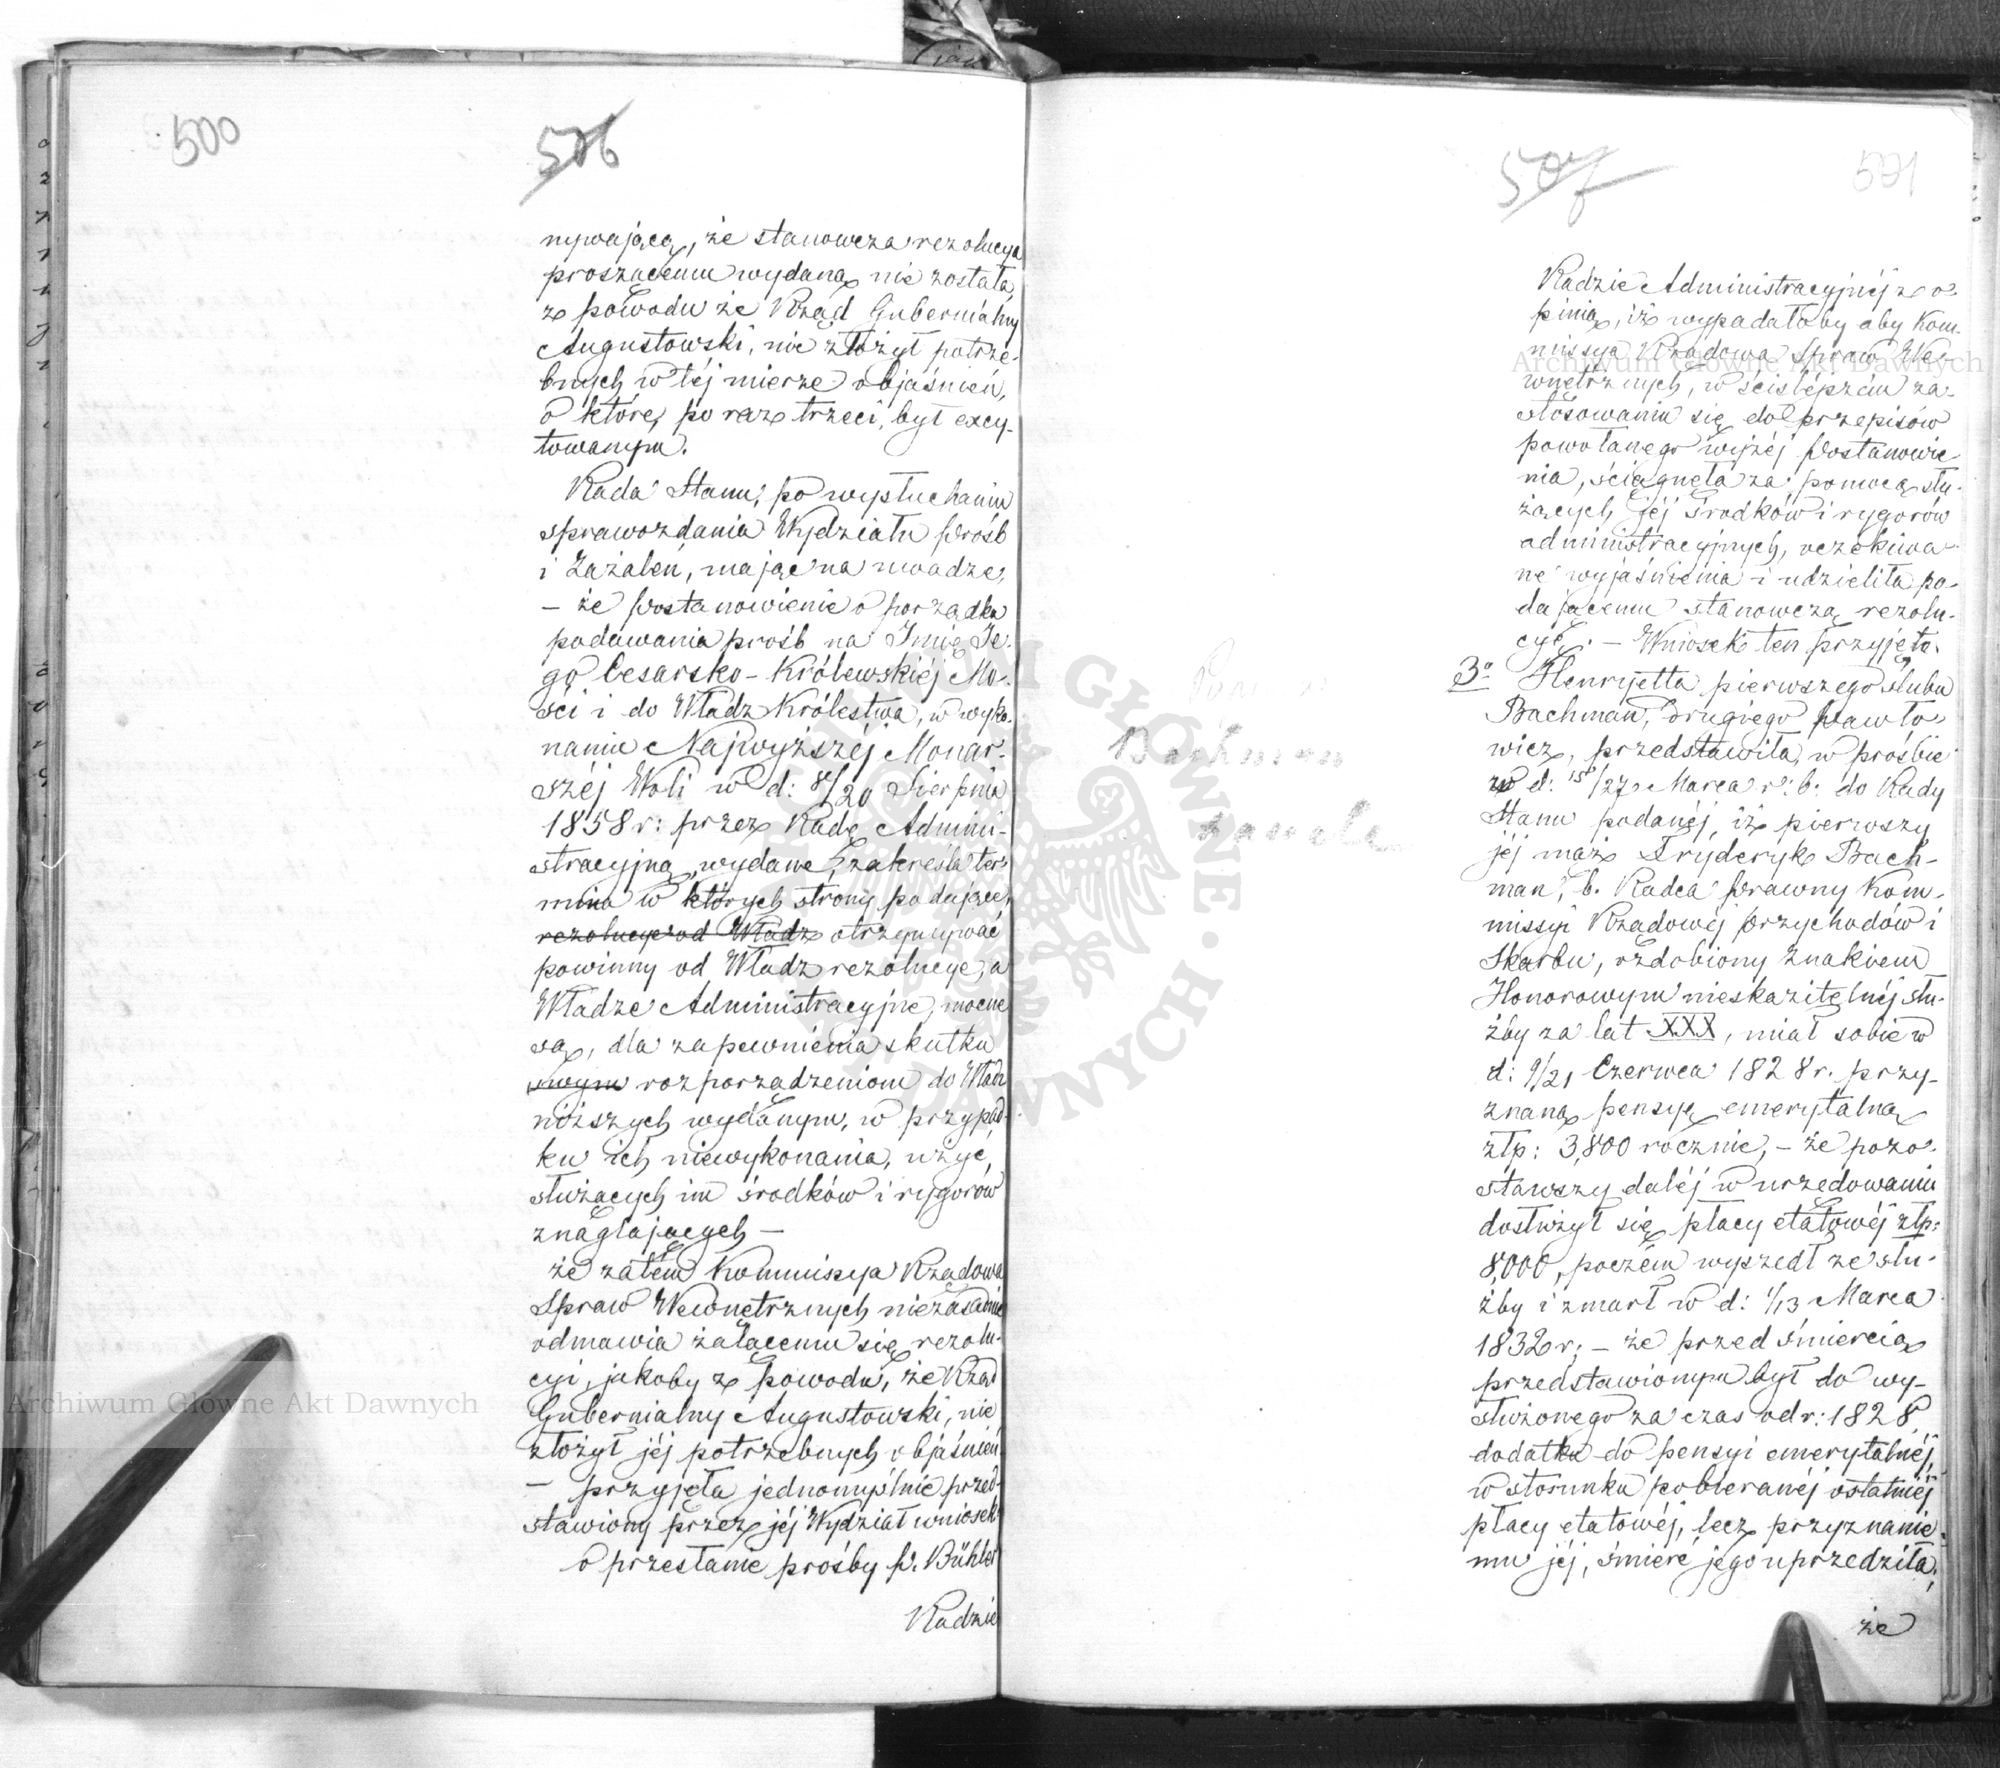 500
506
nywającą, że stanowcza rezolucya
proszącemu wydaną nie została
z powodu że Rząd Gubernialny
Augustowski, nie złożył potrze-
bnych w téj mierze objaśnień,
o które, po raz trzeci, był excy-
towanym.
Rada Stanu, po wysłuchaniu
sprawozdania Wydziału Próśb
i Zażaleń, mając na uwadze,
— że Postanowienie o porządku
podawania próśb na Imię Je-
go Cesarsko-Królewskiéj Mo-
ści i do Władz Królestwa, w wyko-
naniu Najwyższéj Monar-
széj Woli w d: 8/20 Sierpnia
1858 r: przez Radę Admini-
stracyjną, wydane, zakreśla ter-
mina w których strony podające,
rezolucye od Władz otrzymywać
powinny od Władz rezolucye, a
Władze Administracyjne, mocne
są, dla zapewnienia skutku
swym rozporządzeniom do Władz
niższych wydanym, w przypad-
ku ich niewykonania, użyć,
służących im środków i rygorów
znaglających —
że zatem Kommissya Rządowa
Spraw Wewnętrznych niezasadnie
odmawia żalącemu się rezolu-
cyi, jakoby z powodu, że Rząd
Gubernialny Augustowski, nie
złożył jéj potrzebnych objaśnień
— przyjęła jednomyślnie przed-
stawiony przez jéj Wydział wniosek
o przesłanie prośby P. Bühler
Radzie
507
501
Radzie Administracyjnéj z o-
pinią, iż wypadałoby aby Kom-
missya Rządowa Spraw We-
wnętrznych, w ściślejszém za-
stosowaniu się do przepisów
powołanego wyżéj Postanowie
nia, ściągnęła za pomocą słu-
żących jéj środków i rygorów
administracyjnych, oczekiwa-
ne wyjaśnienia i udzieliła po-
dającemu stanowczą rezolu-
cyę. — Wniosek ten przyjęto.
3º Henryetta pierwszego ślubu
Bachman, drugiego Pawło-
wicz, przedstawiła, w prośbie
w d: 15/27 Marca r: b: do Rady
Stanu podanéj, iż pierwszy
jéj mąż Fryderyk Bach-
man, b. Radca Prawny Kom-
missyi Rządowéj Przychodów i
Skarbu, ozdobiony Znakiem
Honorowym nieskazitelnéj słu-
żby za lat XXX, miał sobie w
d: 9/21 Czerwca 1828 r. przy-
znaną pensyę emerytalną
złp: 3,800 rocznie, — że pozo-
stawszy daléj w urzędowaniu
dosłużył się płacy etatowéj złp:
8,000, poczém wyszedł ze słu-
żby i zmarł w d: 1/13 Marca
1832 r; — że przed śmiercią
przedstawionym był do wy-
służonego za czas od r: 1828
dodatku do pensyi emerytalnéj,
w stosunku pobieranéj ostatniéj
płacy etatowéj, lecz przyznanie
mu jéj, śmierć jego uprzedziła,
że
Bachman
Archiwum Główne Akt Dawnych
Archiwum Główne Akt Dawnych
ARCHIWUM GŁÓWNE AKT DAWNYCH